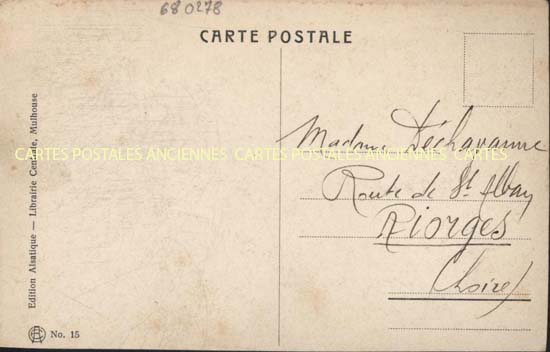 680278
CARTE POSTALE
Madame Déchavanne
CARTES POSTALES ANCIENNES CARTES POSTALES ANCIENNES CARTES
Route de St Alban
Riorges
(Loire)
Edition Alsatique — Librairie Centrale, Mulhouse
No. 15